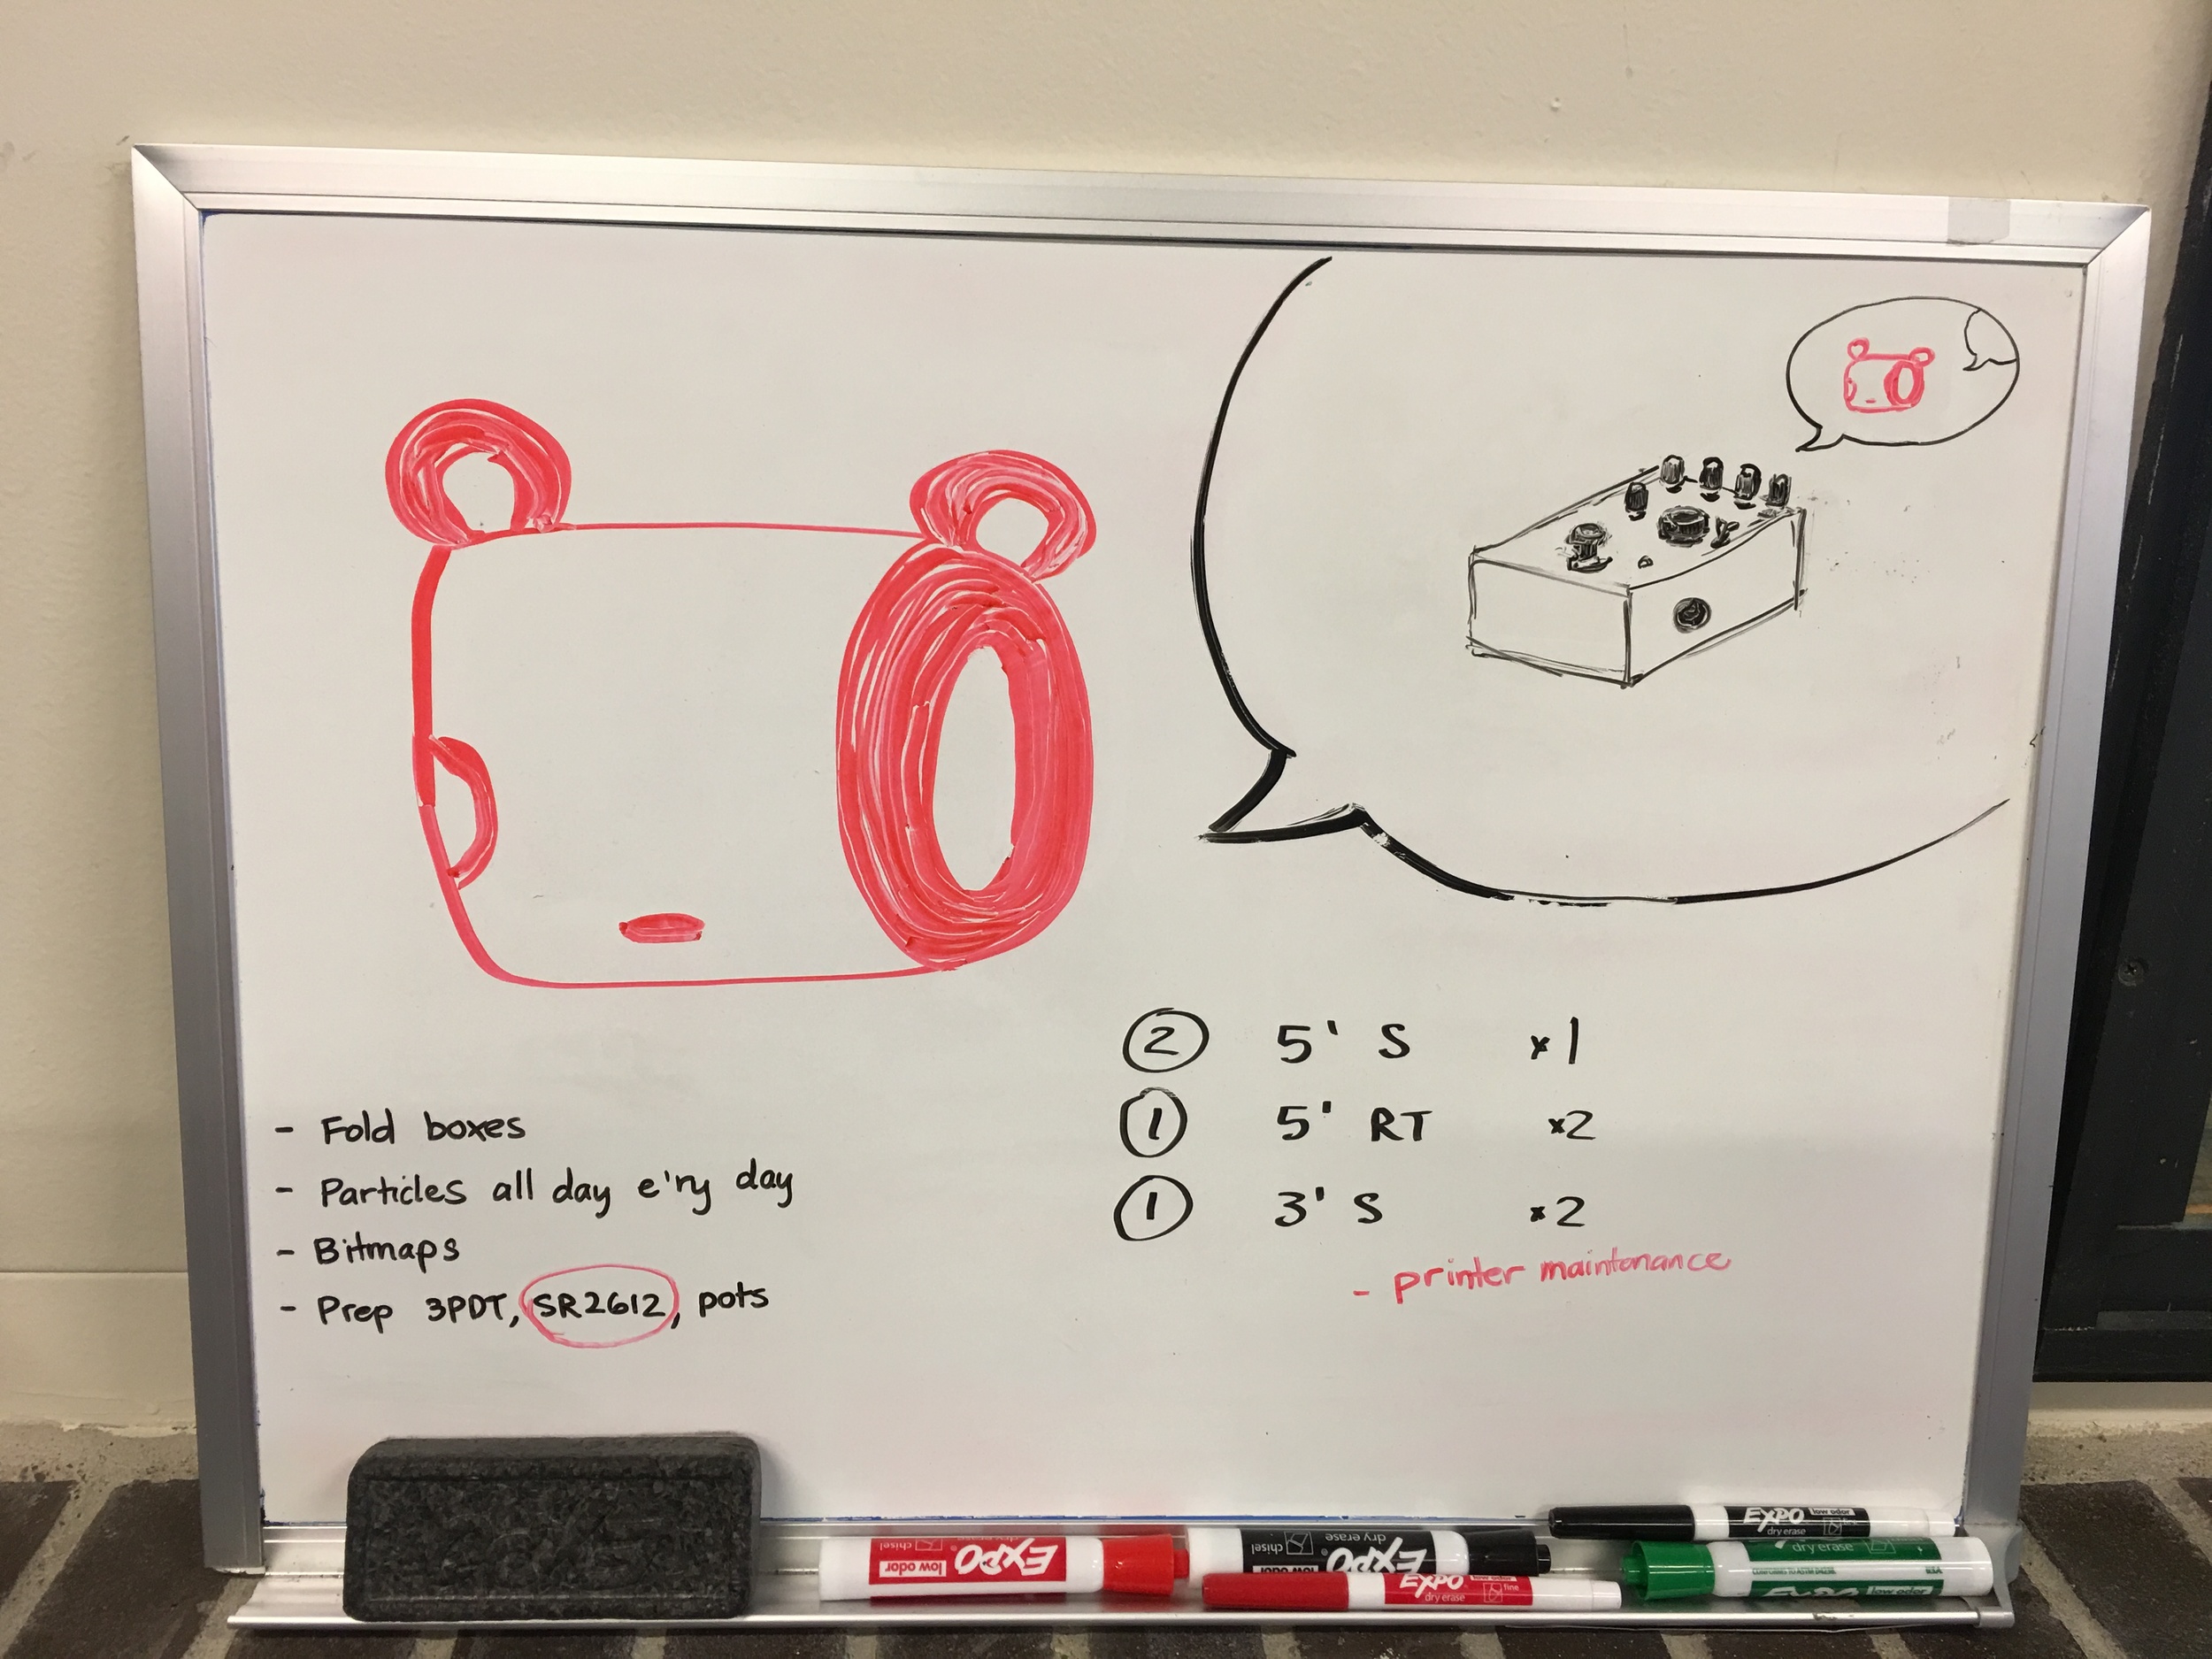 ② 5' S x1
① 5' RT x2
① 3' S x2
- printer maintenance
- Fold boxes
- Particles all day e'ry day
- Bitmaps
- Prep 3PDT, SR2612, pots
EXPO low odor chisel
EXPO dry erase chisel
EXPO low odor dry erase fine
EXPO low odor dry erase
EXPO low odor dry erase